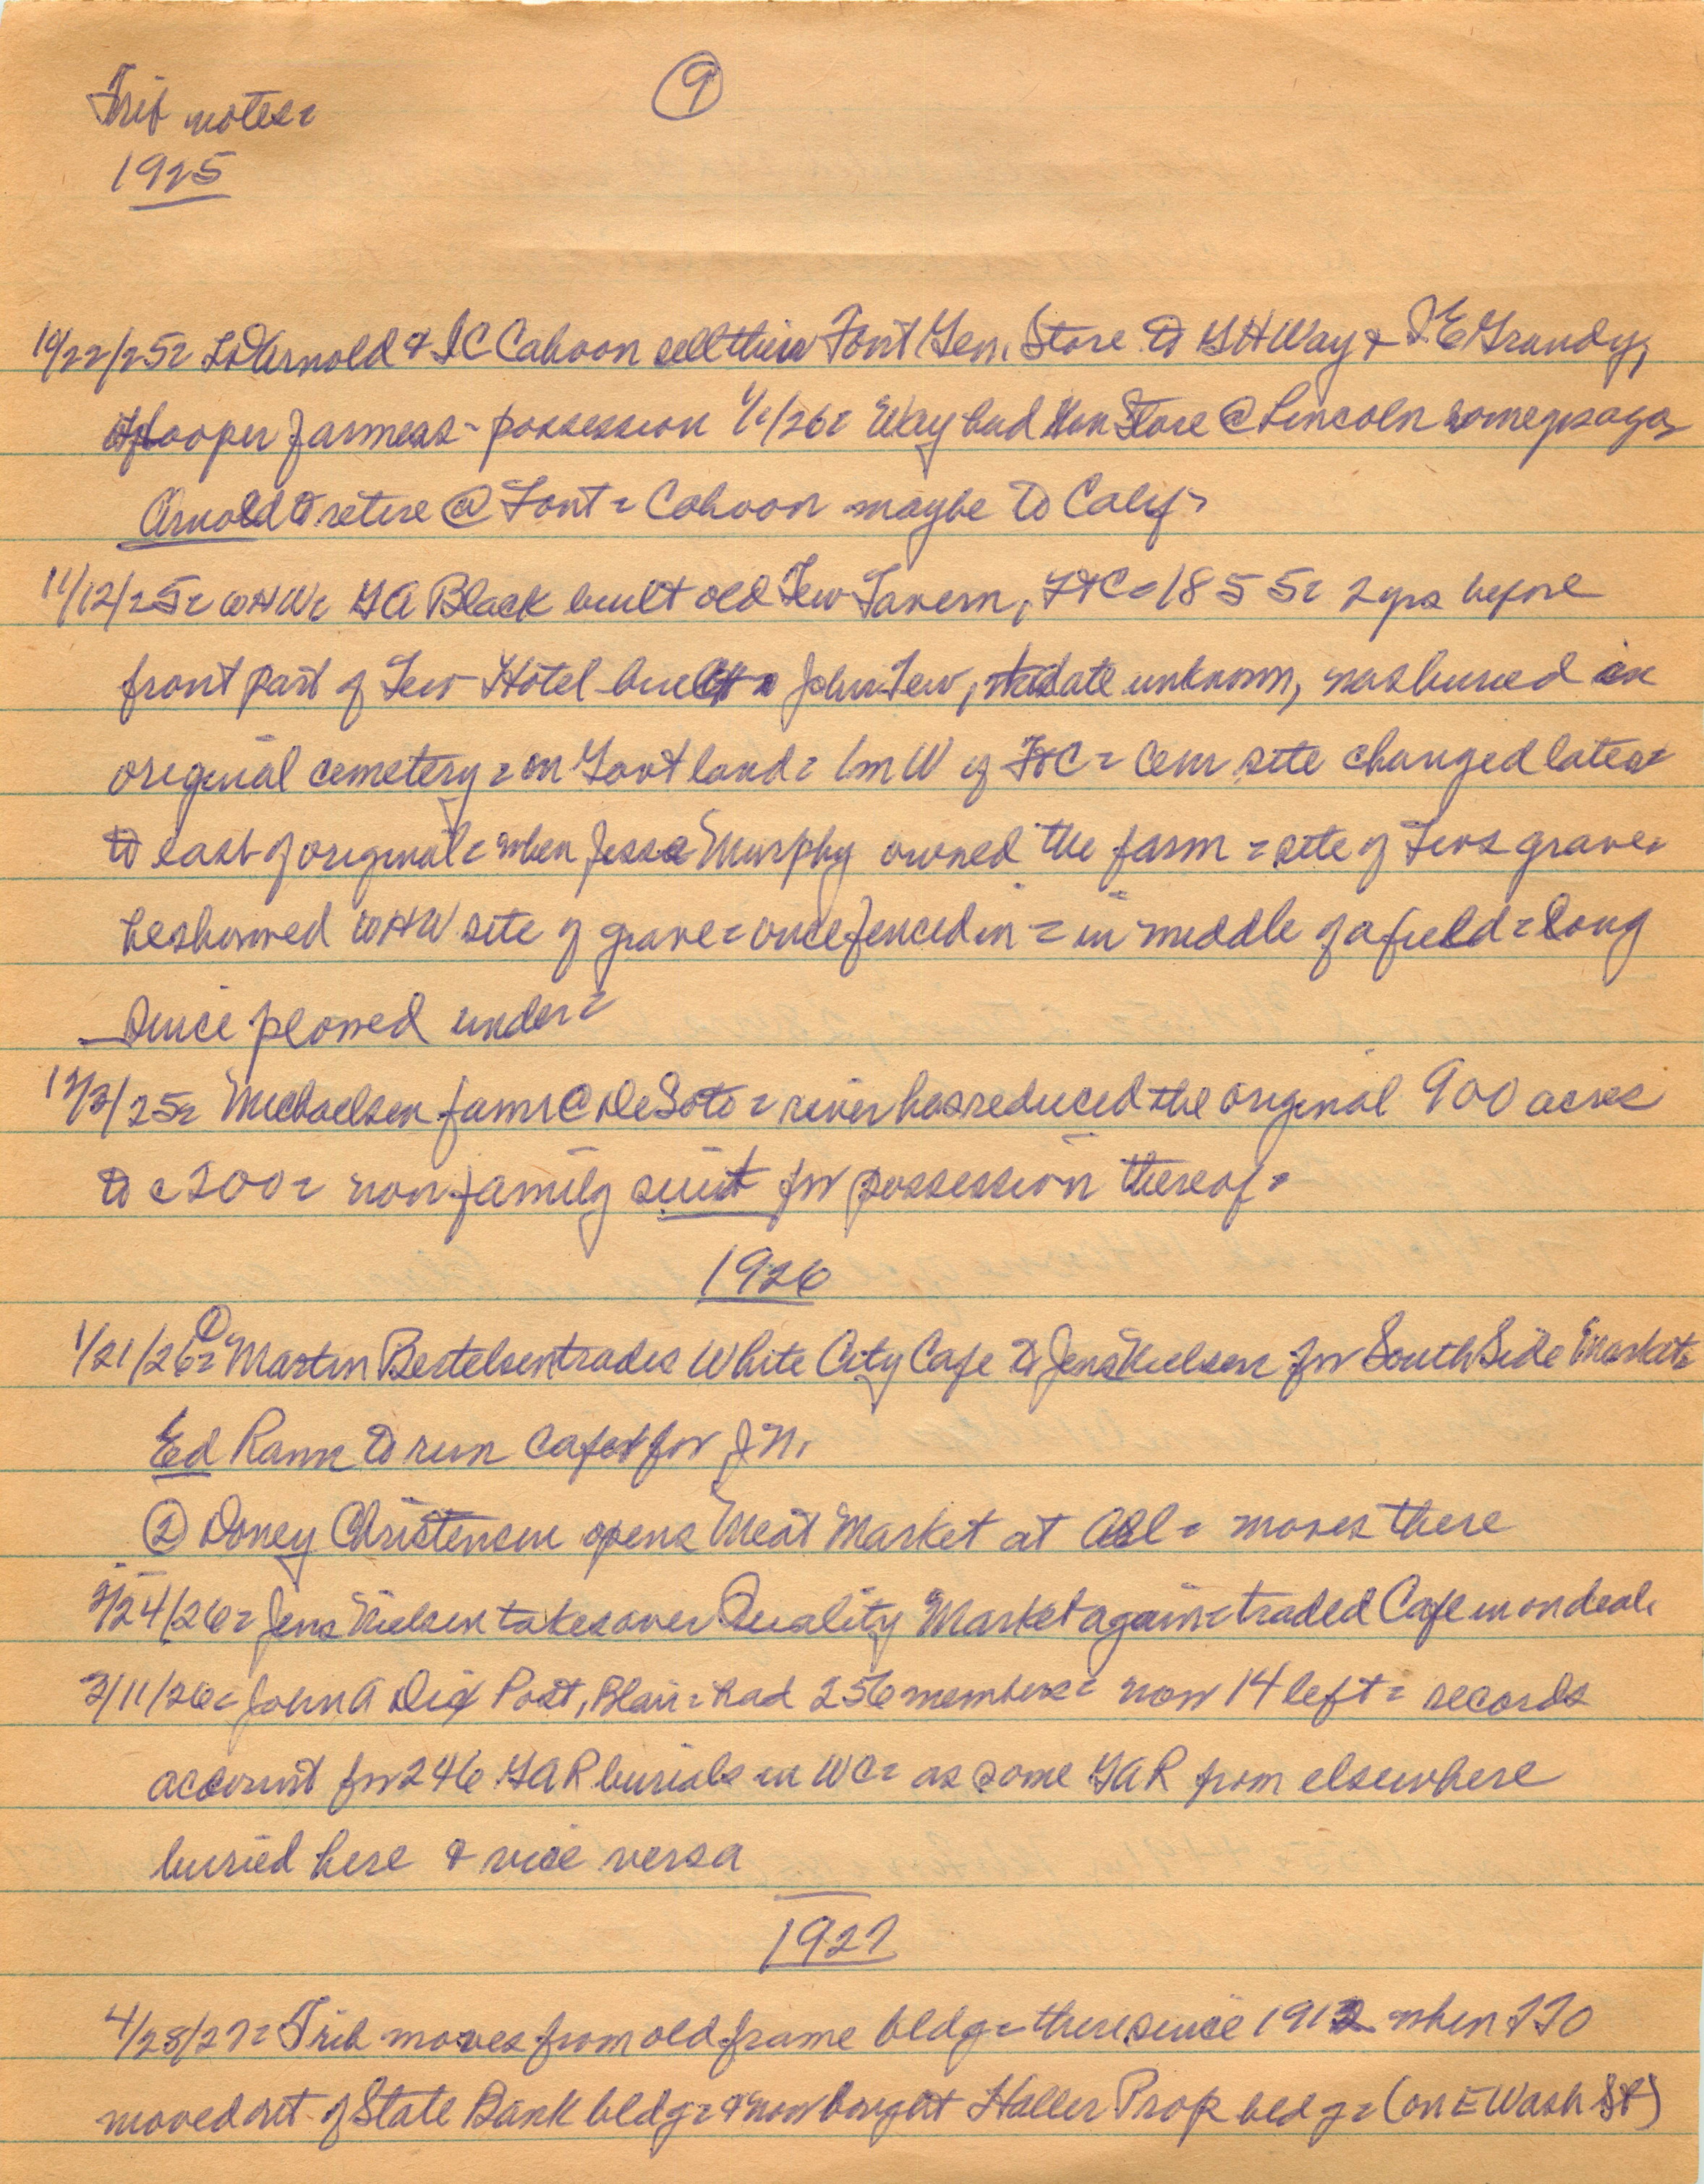 Trib notes=
9
1925
10/22/25= LD Arnold & IC Cahoon sell their Font Gen. Store to GH Way & E Grandy,
Hooper farmers - possession 1/1/26= Way had Gen Store @ Lincoln some yrs ago,
Arnold to retire @ Font = Cahoon maybe to Calif=
11/12/25= WHW= GA Black built old Tew Tavern, FtC=1855= 2 yrs before
front part of Tew Hotel built = John Tew, date unknown, was buried in
original cemetery = on Govt land = 1m W of FtC = Cem site changed later=
to east of original = when Jesse Murphy owned the farm = site of Tews grave=
he showed WHW site of grave = once fenced in = in middle of a field = long
since plowed under=
12/3/25= Michaelsen farm @ DeSoto = river has reduced the original 900 acres
to c 200= non family suit for possession thereof=
1926
1/21/26= ① Martin Bertelsen trades White City Cafe to Jens Nielsen for South Side Market=
Ed Rann to run cafe for J N.
② Doney Christensen opens Meat Market at = moves there
2/24/26= Jens Nielsen takes over Quality Market again = traded Cafe in on deal.
3/11/26= John A Dix Post, Blair = had 256 members = now 14 left = records
account for 246 GAR burials in WC= as some GAR from elsewhere
buried here & vice versa
1927
4/28/27= Trib moves from old frame bldg = there since 1912 when
moved out of State Bank bldg = & now bought Haller Prop bldg = (on E Wash St)